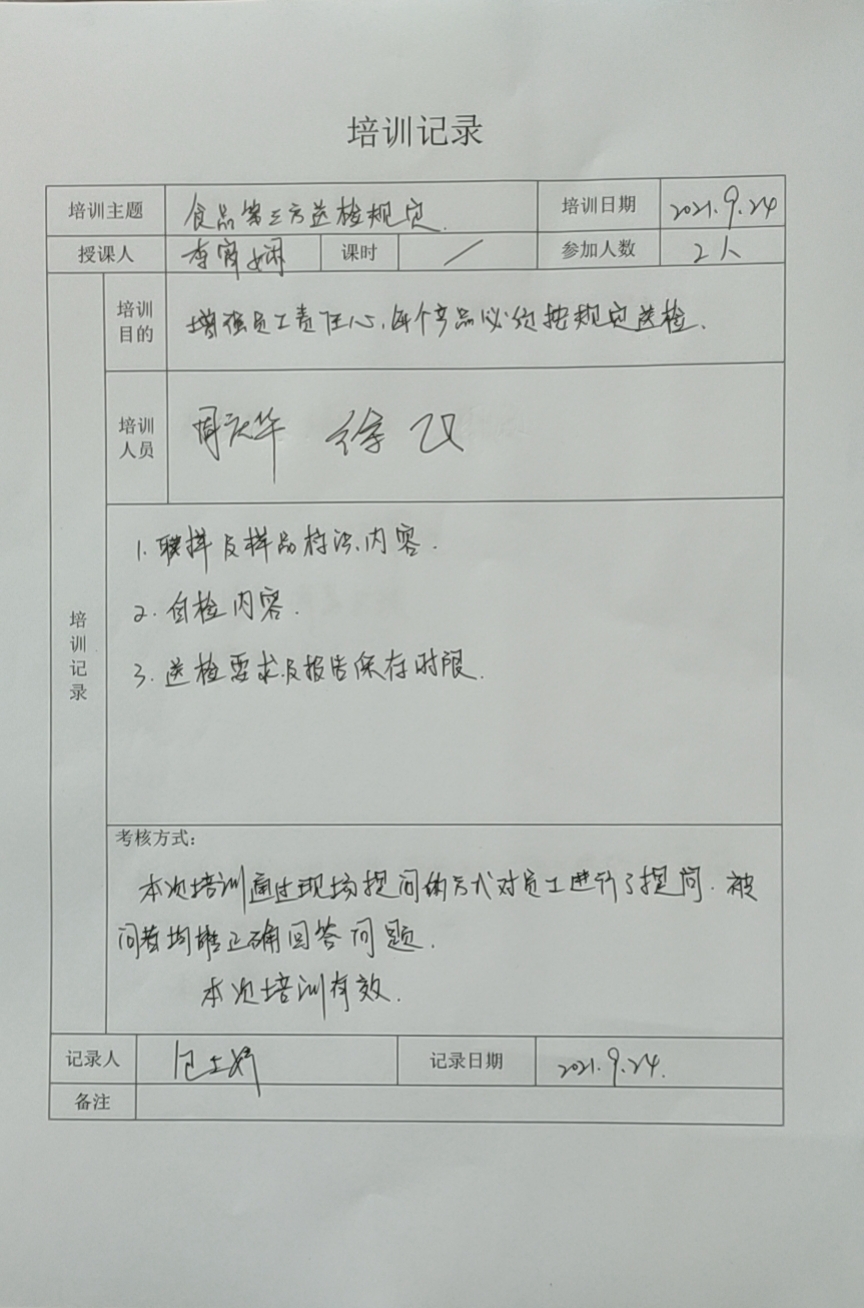 培训记录
培训主题 食品第三方送检规定. 培训日期 2021.9.24
授课人 李 娴 课时 / 参加人数 2人
培训目的 增强员工责任心,每个产品必须按规定送检.
培训人员 周庆华 徐
培训记录
1. 取样及样品标识内容.
2. 自检内容.
3. 送检要求及报告保存时限.
考核方式:
本次培训通过现场提问的方式对员工进行了提问.被
问者均能正确回答问题.
本次培训有效.
记录人 记录日期 2021.9.24.
备注